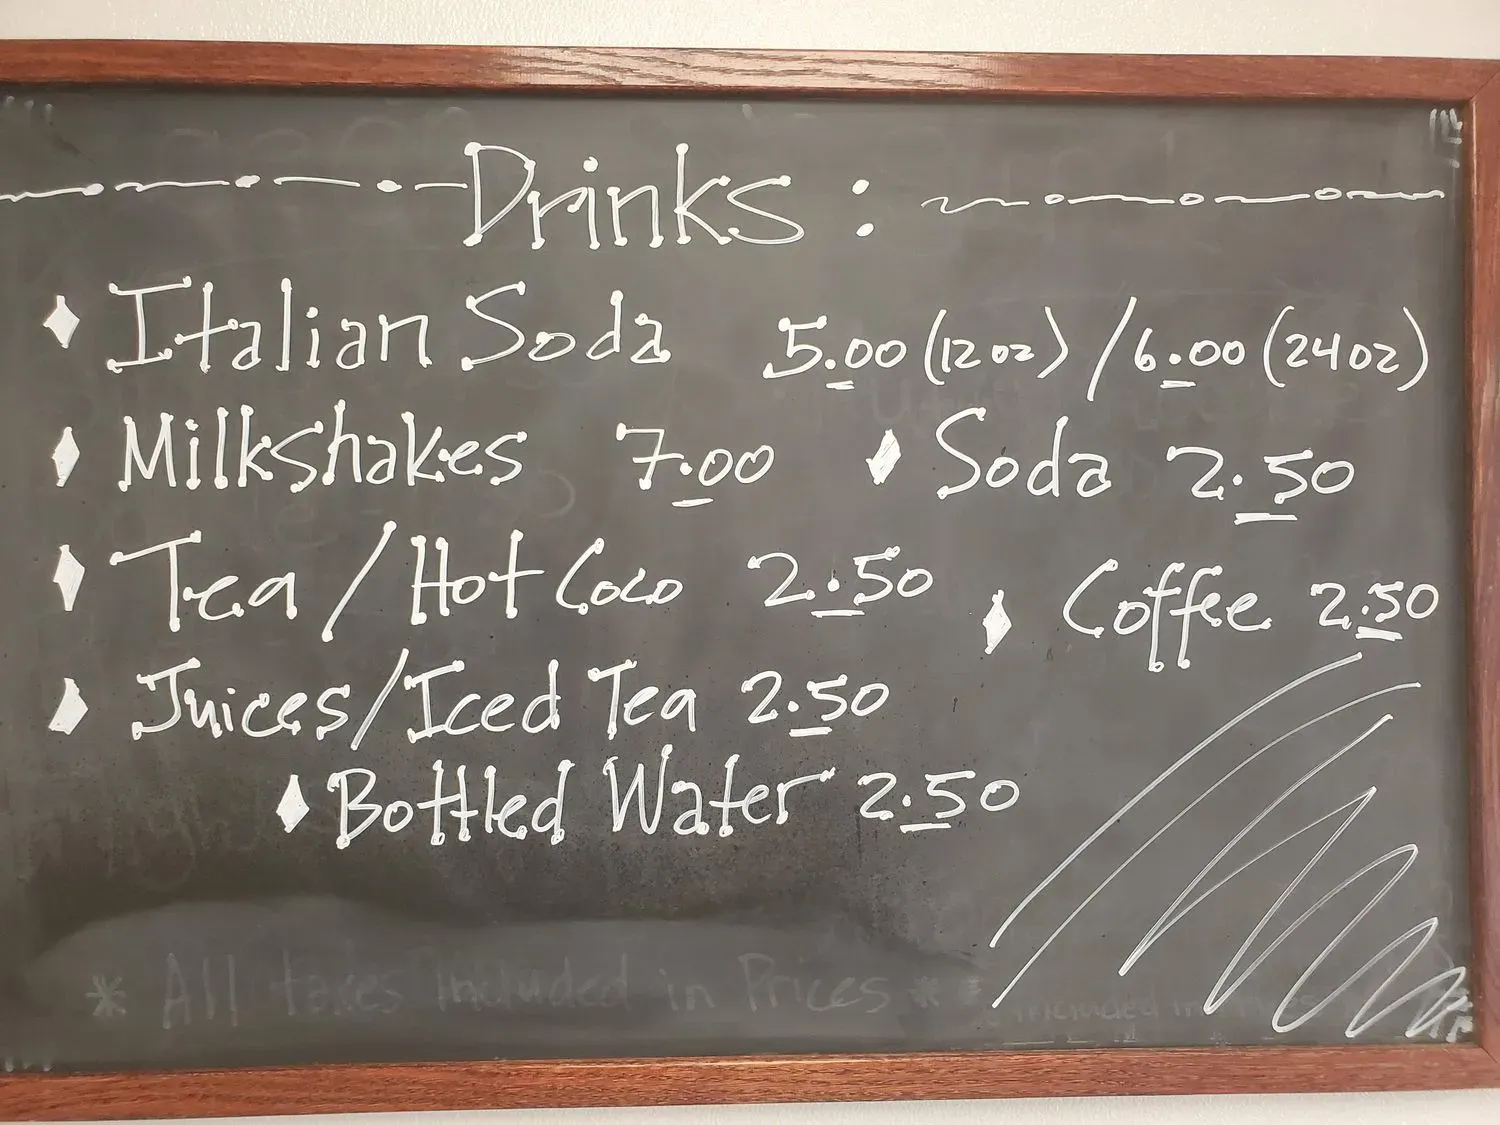 Drinks :
Italian Soda 5.00 (12 oz) / 6.00 (24 oz)
Milkshakes 7.00 Soda 2.50
Tea / Hot Coco 2.50 Coffee 2.50
Juices/Iced Tea 2.50
Bottled Water 2.50
* All taxes included in Prices *